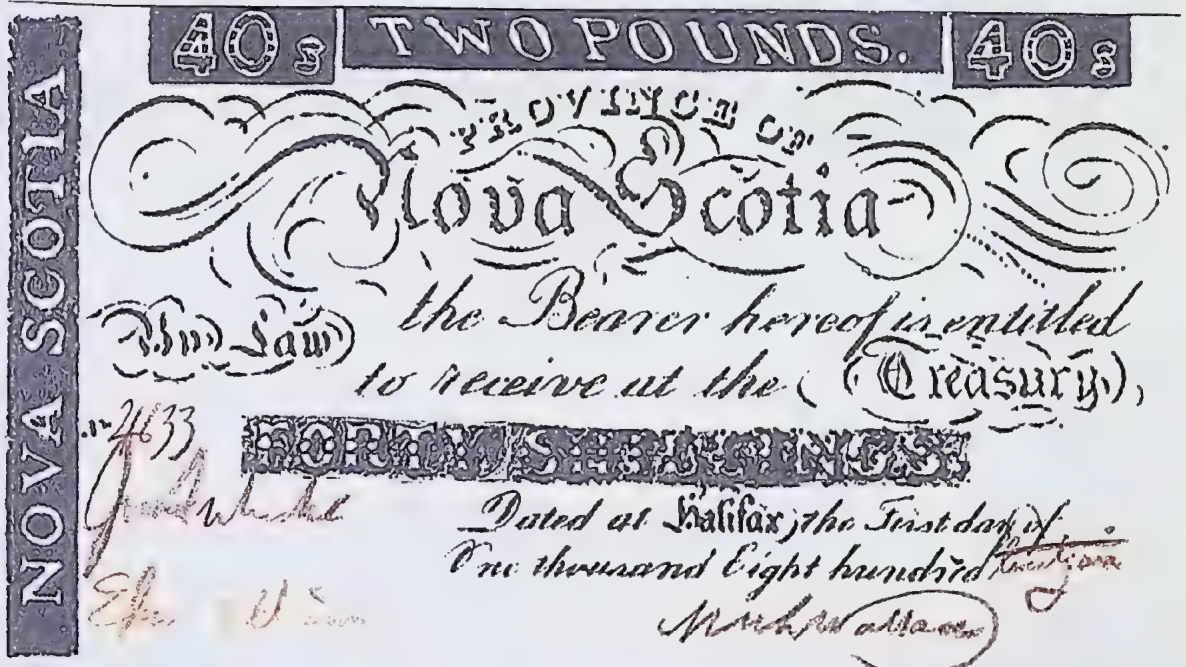 40s TWO POUNDS. 40s
NOVA SCOTIA
PROVINCE OF
Nova Scotia
By Law the Bearer hereof is entitled
to receive at the Treasury,
4633
FORTY SHILLINGS.
Dated at Halifax, the First day of
One thousand Eight hundred